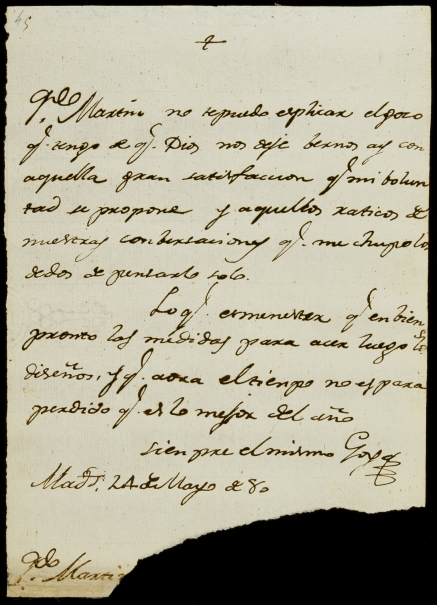 65
+
Q.do Martin no te puedo esplicar el gozo
q.e tengo de q.e Dios nos deje bernos ay con
aquella gran satisfaccion q.e mi bolun
tad se propone y aquellos raticos de
nuestras conbersaciones q.e me chupo los
dedos de pensarlo solo.
Lo q.e es menester q.e enbien
pronto las medidas para acer luego los
diseños, y q.e aora el tiempo no es para
perdido q.e es lo mejor del año
siempre el mismo Goya
Mad.d 24 de Mayo de 80
Q.do Martin